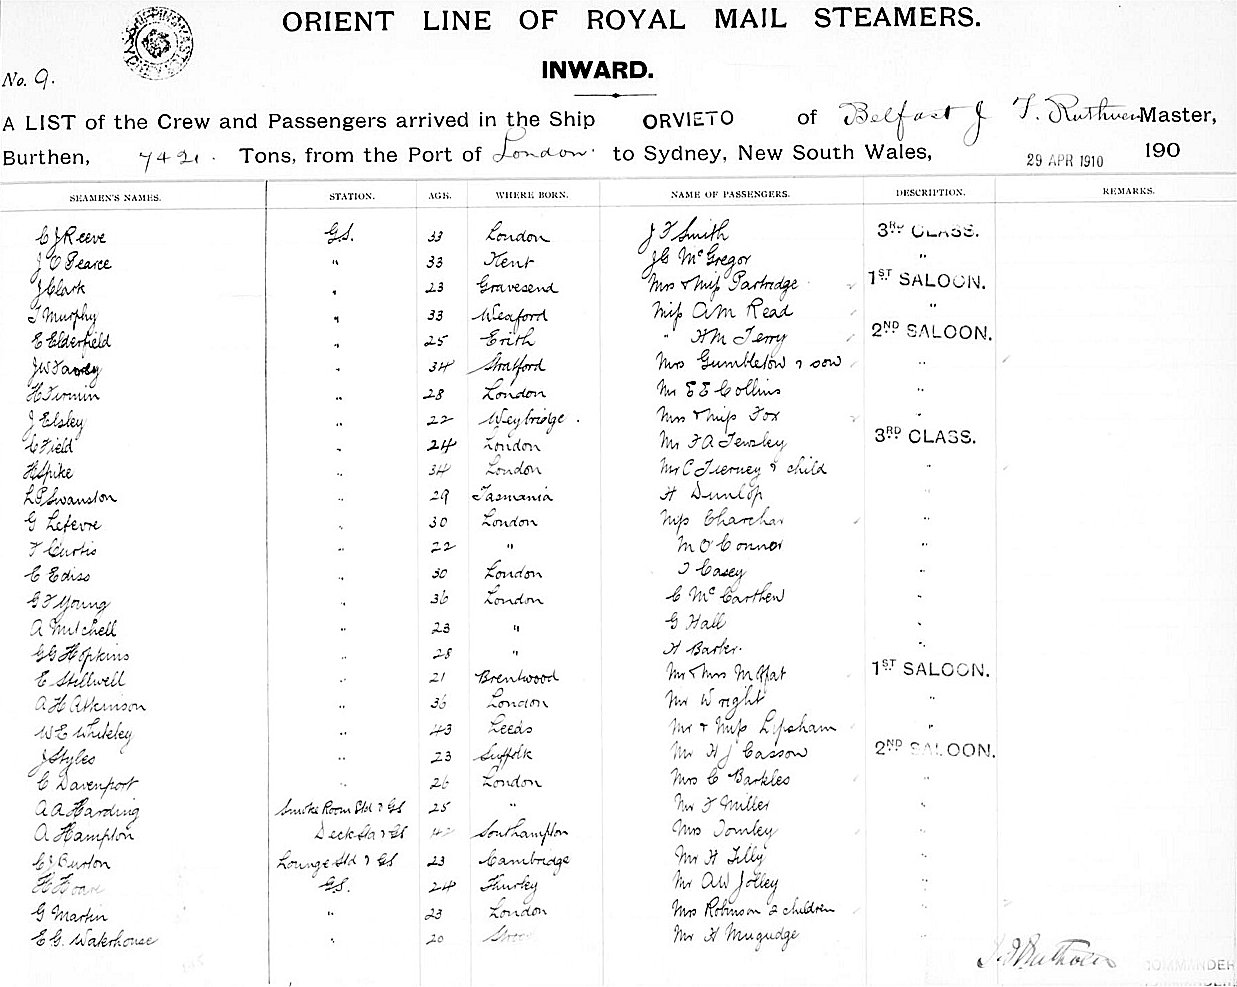 ORIENT LINE OF ROYAL MAIL STEAMERS.
No. 9.
INWARD.
A LIST of the Crew and Passengers arrived in the Ship ORVIETO of Belfast J F. Ruthven Master,
Burthen, 7421. Tons, from the Port of London. to Sydney, New South Wales, 29 APR 1910 190
SEAMEN'S NAMES. STATION. AGE. WHERE BORN. NAME OF PASSENGERS. DESCRIPTION. REMARKS.
C J Reeve G.S. 33 London J F Smith 3RD CLASS.
J C Pearce " 33 Kent J G McGregor "
J Clark " 23 Gravesend Mrs & Miss Partridge 1ST SALOON.
T Murphy " 33 Wexford Miss A M Read "
E Elderfield " 25 Erith " H M Terry 2ND SALOON.
J W " 34 Stratford Mrs Gumbleton & son "
H Tirmin " 28 London Mr E E Collins "
J Elsley " 22 Weybridge. Mrs & Miss Fox "
C Field " 24 London Mr F A Tewsley 3RD CLASS.
H Spike " 34 London Mr C Tierney & child "
L P Swanston " 29 Tasmania H Dunlop "
G Lefevre " 30 London Miss "
F Curtis " 22 " M O'Connor "
C Ediss " 30 London J Casey "
G F Young " 36 London C McCarthen "
A Mitchell " 23 " G Hall "
G G Hopkins " 28 " H Barker. "
E Stillwell " 21 Brentwood Mr & Mrs Moffat 1ST SALOON.
A H Atkinson " 36 London Mr Wright "
W E Whiteley " 43 Leeds Mr & Miss Lipsham "
J Styles " 23 Suffolk Mr H J Casson 2ND SALOON.
C Davenport " 26 London Mrs C Barkles "
A A Harding Smoke Room Std & GS 25 " Mr F Miller "
A Hampton Deck Std & GS 42 Southampton Mrs Tomley "
C J Burton Lounge Std & GS 23 Cambridge Mr H Tilly "
H Hoare G.S. 24 Thurley Mr A W Jolley "
G Martin " 23 London Mrs Robinson 2 children "
E C. Waterhouse " 20 Mr H Mugudge "
J F Ruthven COMMANDER